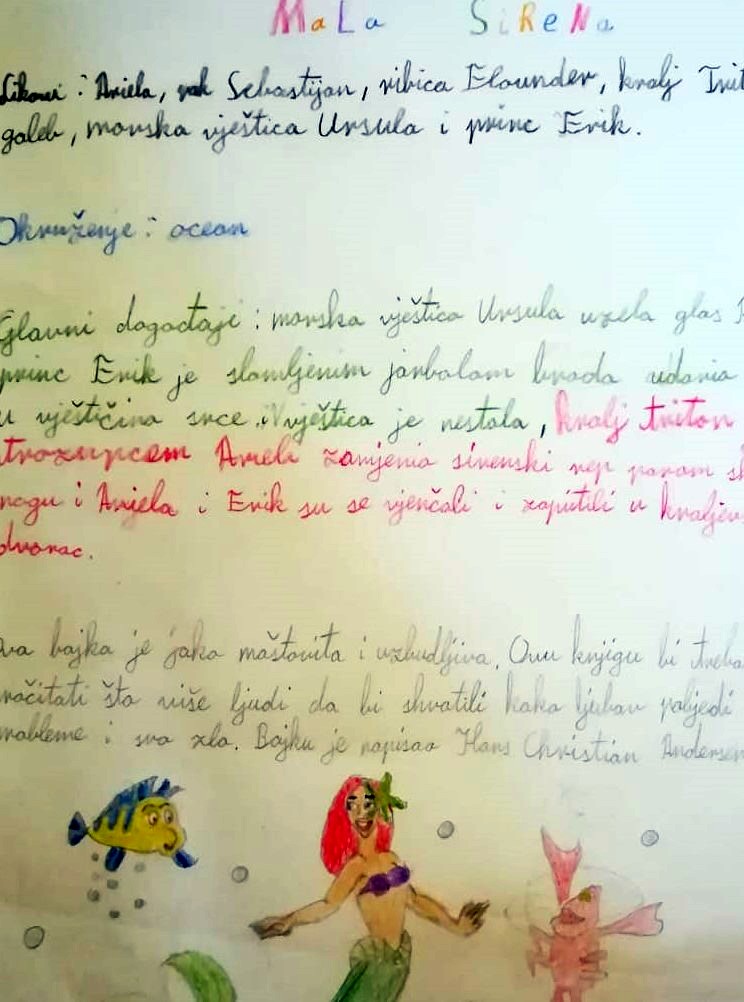 MaLa SiReNa
Likovi : Ariela, rak Sebastijan, ribica Flounder, kralj Trit
galeb, morska vještica Ursula i princ Erik.
Okruženje : ocean
Glavni događaji : morska vještica Ursula uzela glas
princ Erik je slomljenim jarbolom broda udario
u vještičino srce i vještica je nestala, kralj triton
trozupcem Arieli zamjenio sirenski rep parom
nogu i Arijela i Erik su se vjenčali i zaputili u kraljev
dvorac.
va bajka je jako maštovita i uzbudljiva. Ovu knjigu bi treba
ročitati što više ljudi da bi shvatili kako ljubav pobjedi
robleme i sva zla. Bajku je napisao Hans Christian Andersen